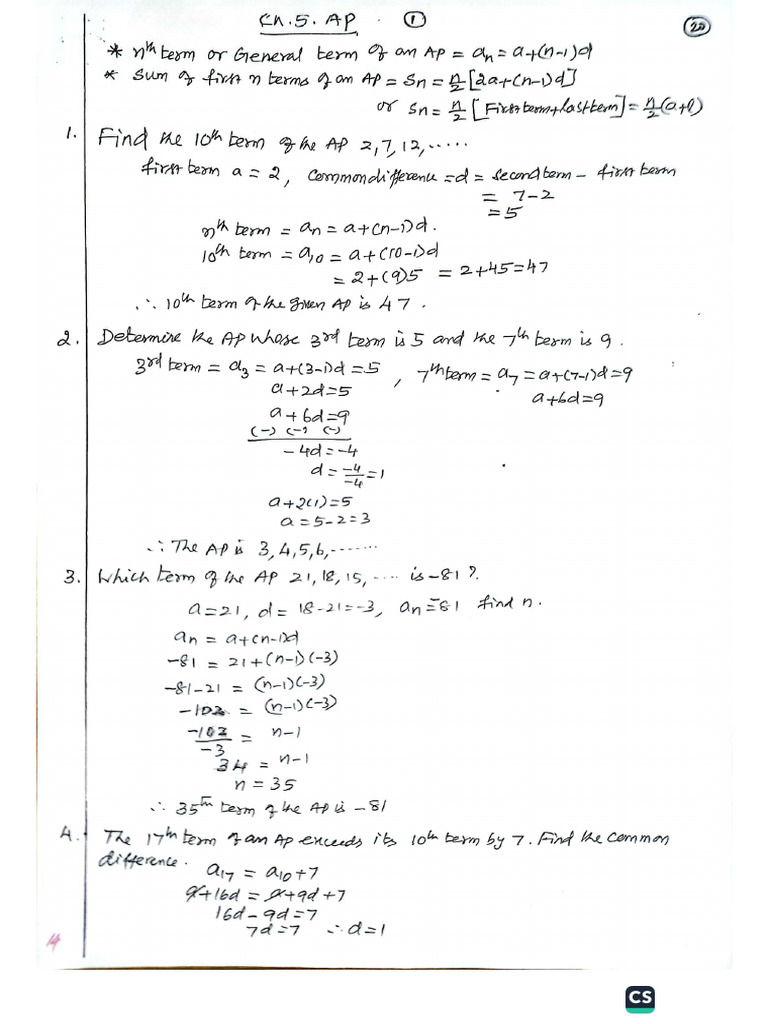 Ch.5. AP ① ⑳
* nth term or General term of an AP = an = a+(n-1)d
* Sum of first n terms of an AP = Sn = n/2 [2a+(n-1)d]
or Sn = n/2 [First term+last term] = n/2 (a+l)
1. Find the 10th term of the AP 2,7,12,.....
first term a = 2, Common difference = d = second term - first term
= 7-2
= 5
nth term = an = a+(n-1)d.
10th term = a10 = a+(10-1)d
= 2+(9)5 = 2+45=47
∴ 10th term of the given AP is 47.
2. Determine the AP whose 3rd term is 5 and the 7th term is 9.
3rd term = a3 = a+(3-1)d = 5, 7th term = a7 = a+(7-1)d=9
a+2d=5 a+6d=9
a+6d=9
(-) (-) (-)
-4d=-4
d = -4/-4 = 1
a+2(1)=5
a = 5-2=3
∴ The AP is 3,4,5,6,.......
3. Which term of the AP 21,18,15, .... is -81?
a=21, d= 18-21=-3, an=-81 find n.
an = a+(n-1)d
-81 = 21+(n-1)(-3)
-81-21 = (n-1)(-3)
-102 = (n-1)(-3)
-102/-3 = n-1
34 = n-1
n = 35
∴ 35th term of the AP is -81
4. The 17th term of an AP exceeds its 10th term by 7. Find the Common
difference.
a17 = a10+7
a+16d = a+9d+7
16d-9d=7
7d=7 ∴d=1
14
CS